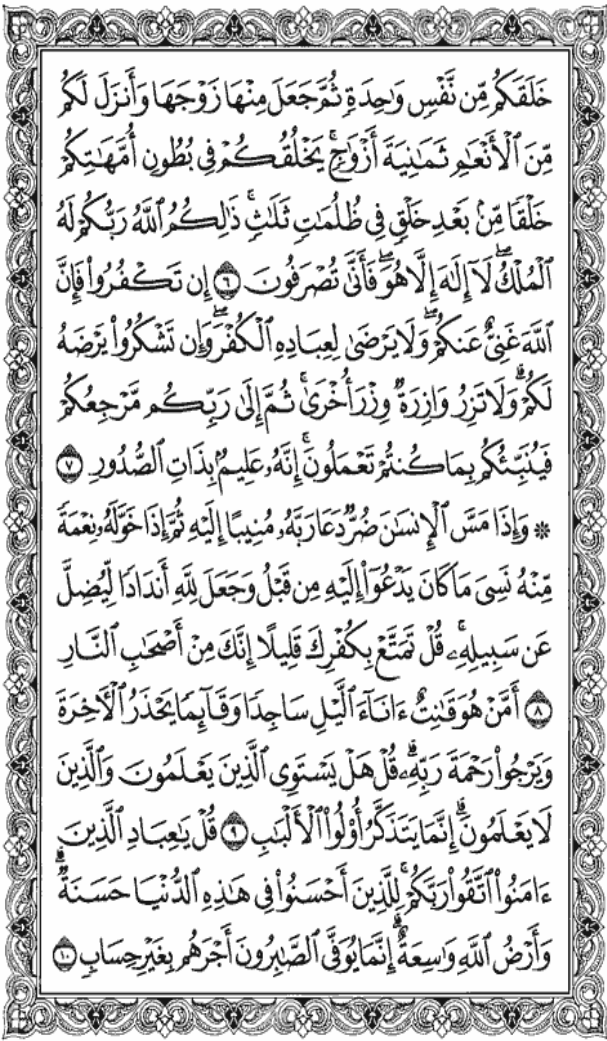 خَلَقَكُم مِّن نَّفْسٍ وَٰحِدَةٍ ثُمَّ جَعَلَ مِنْهَا زَوْجَهَا وَأَنزَلَ لَكُم
مِّنَ ٱلْأَنْعَٰمِ ثَمَٰنِيَةَ أَزْوَٰجٍ ۚ يَخْلُقُكُمْ فِى بُطُونِ أُمَّهَٰتِكُمْ
خَلْقًا مِّنۢ بَعْدِ خَلْقٍ فِى ظُلُمَٰتٍ ثَلَٰثٍ ۚ ذَٰلِكُمُ ٱللَّهُ رَبُّكُمْ لَهُ
ٱلْمُلْكُ ۖ لَآ إِلَٰهَ إِلَّا هُوَ ۖ فَأَنَّىٰ تُصْرَفُونَ ٦ إِن تَكْفُرُوا۟ فَإِنَّ
ٱللَّهَ غَنِىٌّ عَنكُمْ ۖ وَلَا يَرْضَىٰ لِعِبَادِهِ ٱلْكُفْرَ ۖ وَإِن تَشْكُرُوا۟ يَرْضَهُ
لَكُمْ ۗ وَلَا تَزِرُ وَازِرَةٌ وِزْرَ أُخْرَىٰ ۗ ثُمَّ إِلَىٰ رَبِّكُم مَّرْجِعُكُمْ
فَيُنَبِّئُكُم بِمَا كُنتُمْ تَعْمَلُونَ ۚ إِنَّهُۥ عَلِيمٌۢ بِذَاتِ ٱلصُّدُورِ ٧
۞ وَإِذَا مَسَّ ٱلْإِنسَٰنَ ضُرٌّ دَعَا رَبَّهُۥ مُنِيبًا إِلَيْهِ ثُمَّ إِذَا خَوَّلَهُۥ نِعْمَةً
مِّنْهُ نَسِىَ مَا كَانَ يَدْعُوٓا۟ إِلَيْهِ مِن قَبْلُ وَجَعَلَ لِلَّهِ أَندَادًا لِّيُضِلَّ
عَن سَبِيلِهِۦ ۚ قُلْ تَمَتَّعْ بِكُفْرِكَ قَلِيلًا إِنَّكَ مِنْ أَصْحَٰبِ ٱلنَّارِ
٨ أَمَّنْ هُوَ قَٰنِتٌ ءَانَآءَ ٱلَّيْلِ سَاجِدًا وَقَآئِمًا يَحْذَرُ ٱلْءَاخِرَةَ
وَيَرْجُوا۟ رَحْمَةَ رَبِّهِۦ ۗ قُلْ هَلْ يَسْتَوِى ٱلَّذِينَ يَعْلَمُونَ وَٱلَّذِينَ
لَا يَعْلَمُونَ ۗ إِنَّمَا يَتَذَكَّرُ أُو۟لُوا۟ ٱلْأَلْبَٰبِ ٩ قُلْ يَٰعِبَادِ ٱلَّذِينَ
ءَامَنُوا۟ ٱتَّقُوا۟ رَبَّكُمْ ۚ لِلَّذِينَ أَحْسَنُوا۟ فِى هَٰذِهِ ٱلدُّنْيَا حَسَنَةٌ ۗ
وَأَرْضُ ٱللَّهِ وَٰسِعَةٌ ۗ إِنَّمَا يُوَفَّى ٱلصَّٰبِرُونَ أَجْرَهُم بِغَيْرِ حِسَابٍ ١٠